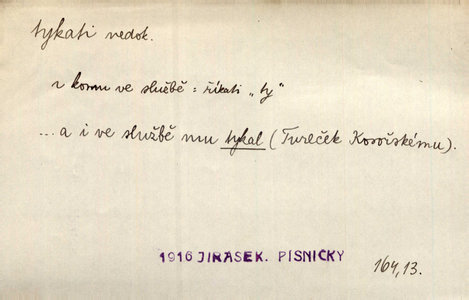 tykati nedok.
komu ve službě : říkati „ty“
... a i ve službě mu tykal (Tureček Kovořskému).
1916 JIRÁSEK. PÍSNIČKY
164,13.